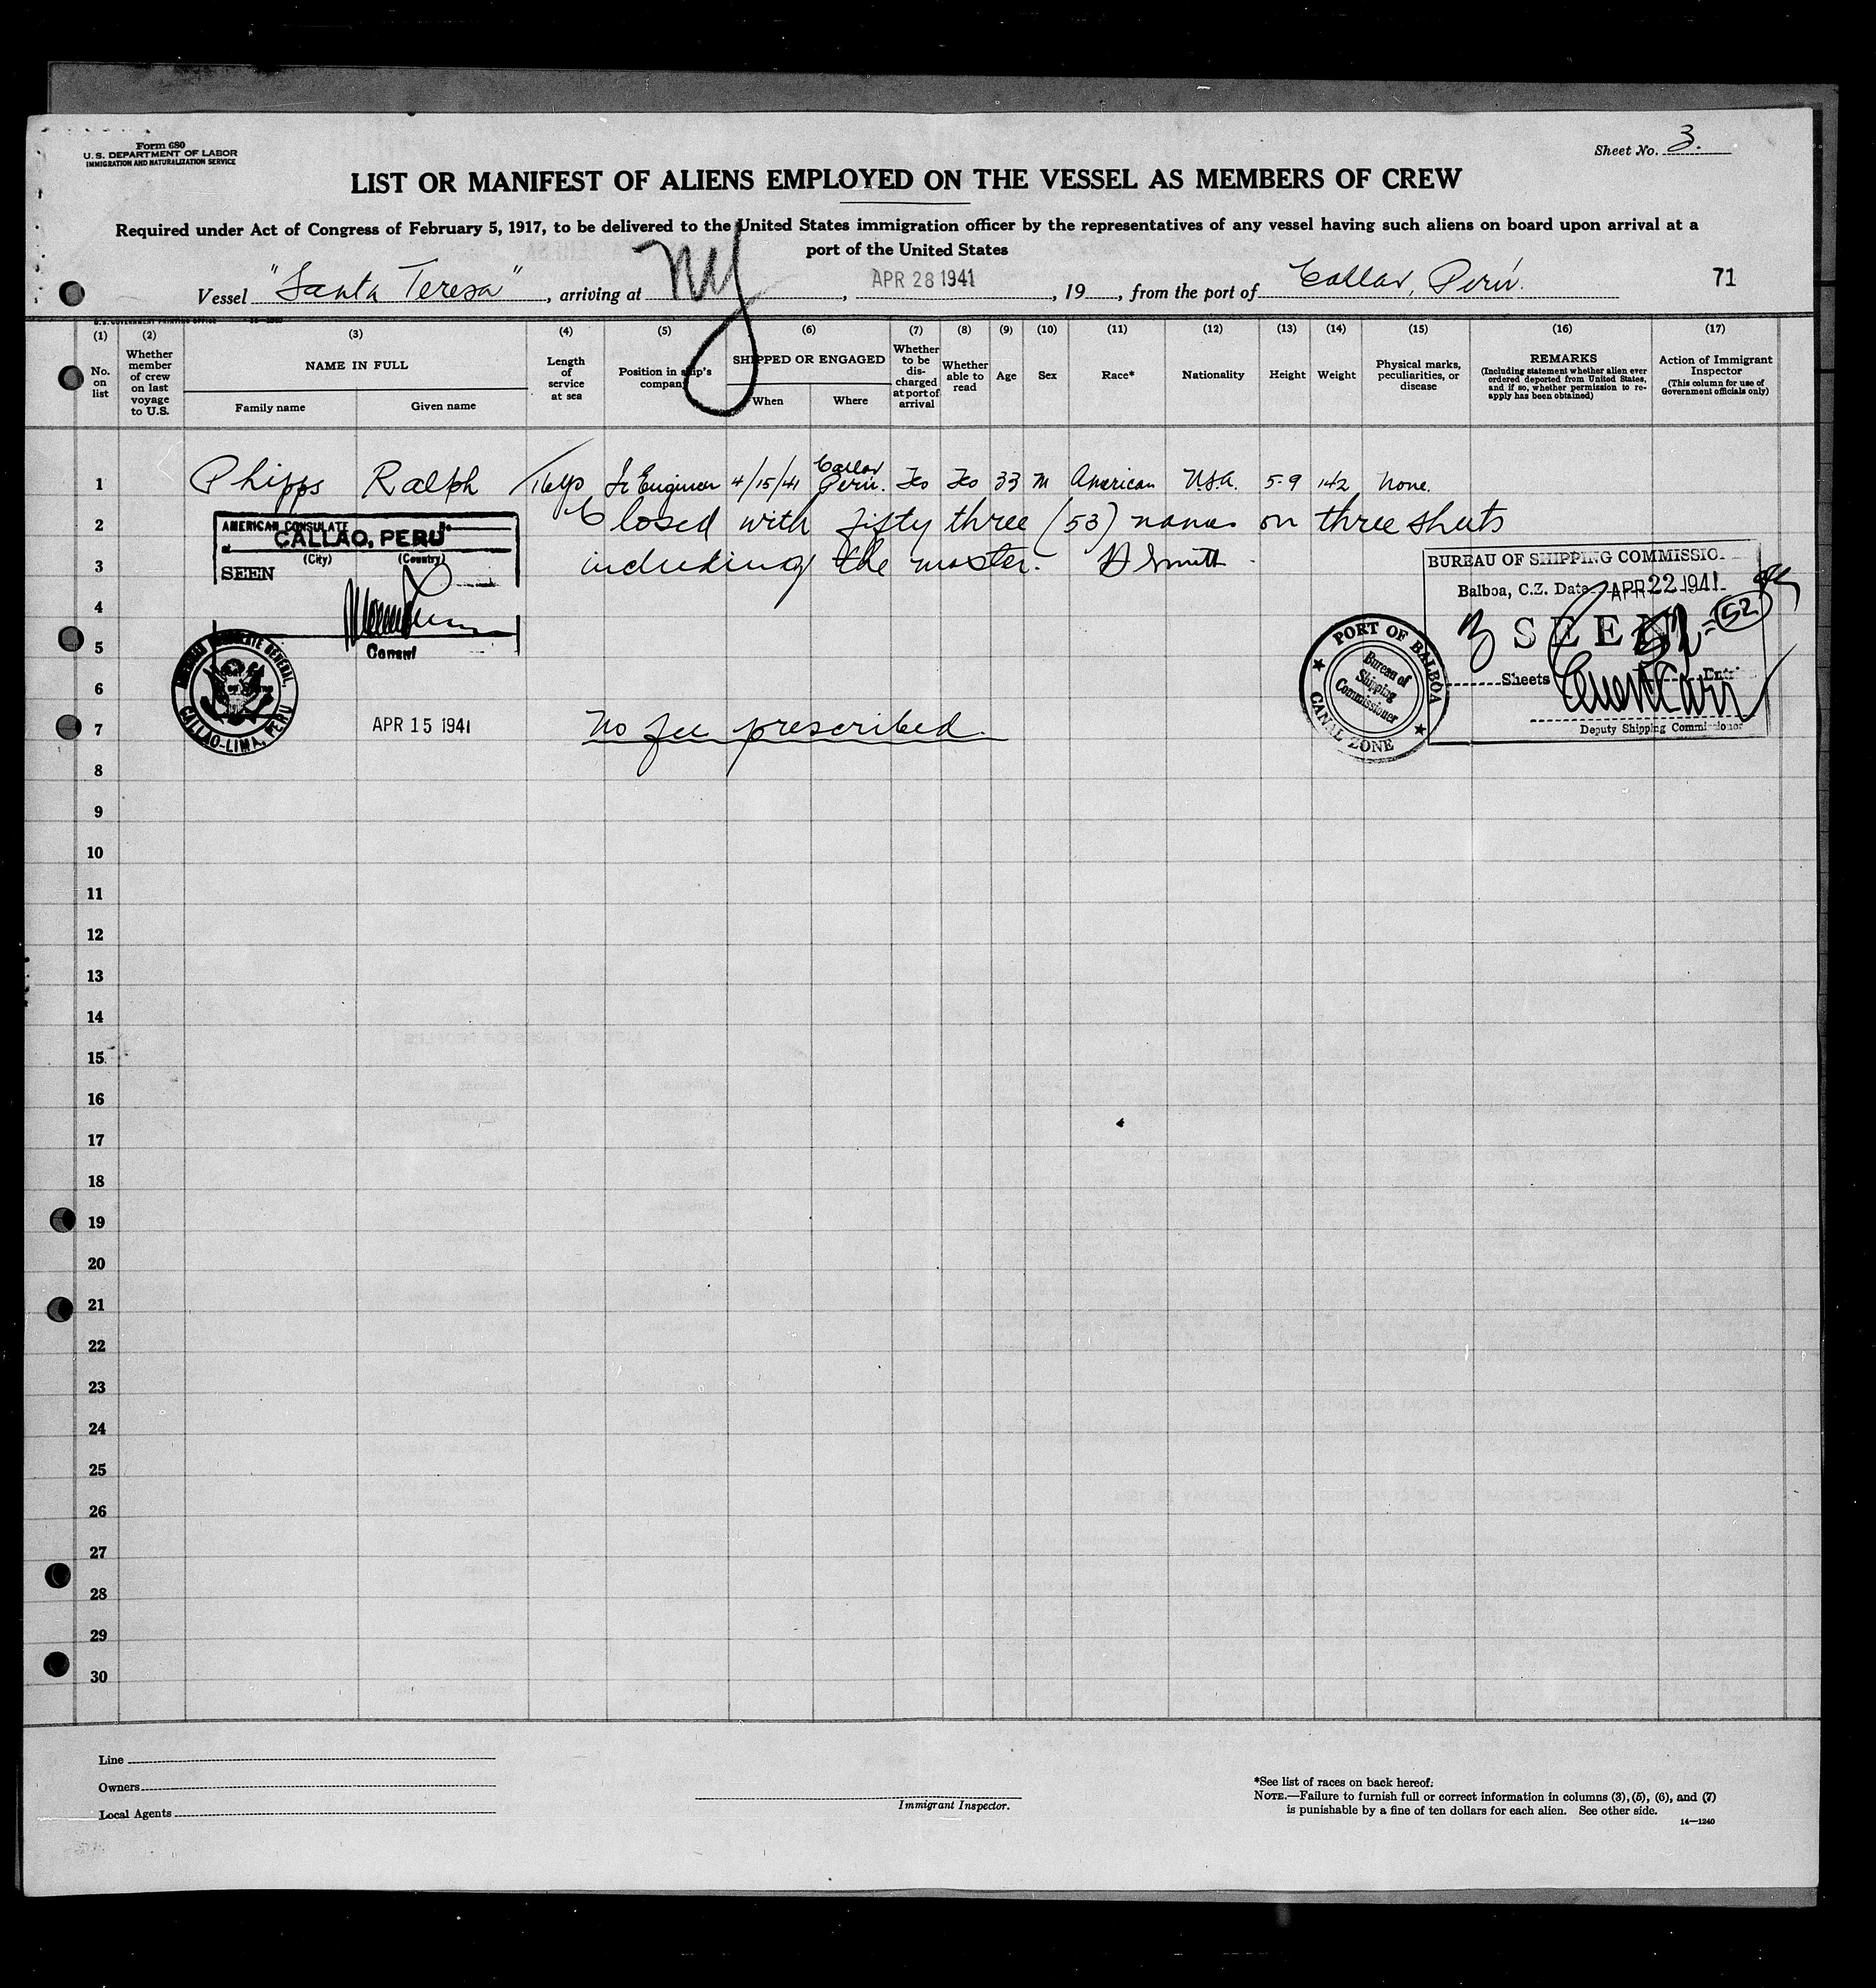 Form 680
U. S. DEPARTMENT OF LABOR
IMMIGRATION AND NATURALIZATION SERVICE
Sheet No. 3.
LIST OR MANIFEST OF ALIENS EMPLOYED ON THE VESSEL AS MEMBERS OF CREW
Required under Act of Congress of February 5, 1917, to be delivered to the United States immigration officer by the representatives of any vessel having such aliens on board upon arrival at a
port of the United States
Vessel "Santa Teresa", arriving at NY, APR 28 1941, 19, from the port of Callao, Perú. 71
U. S. GOVERNMENT PRINTING OFFICE
(1) (2) (3) (4) (5) (6) (7) (8) (9) (10) (11) (12) (13) (14) (15) (16) (17)
No. on list
Whether member of crew on last voyage to U.S.
NAME IN FULL
Family name
Given name
Length of service at sea
Position in ship's company
SHIPPED OR ENGAGED
When
Where
Whether to be discharged at port of arrival
Whether able to read
Age
Sex
Race*
Nationality
Height
Weight
Physical marks, peculiarities, or disease
REMARKS
(Including statement whether alien ever ordered deported from United States, and if so, whether permission to reapply has been obtained)
Action of Immigrant Inspector
(This column for use of Government officials only)
1 Phipps Ralph Jr Engineer 4/15/41 Callao Perú. 33 M American U.S.A. 5-9 142 None.
2 Closed with fifty three (53) names on three sheets
3 including the master. Smith
4
5
6
7 No fee prescribed.
8
9
10
11
12
13
14
15
16
17
18
19
20
21
22
23
24
25
26
27
28
29
30
AMERICAN CONSULATE
at CALLAO, PERU
(City) (Country)
SEEN
Consul
AMERICAN CONSULATE GENERAL,
CALLAO-LIMA, PERU
APR 15 1941
BUREAU OF SHIPPING COMMISSIO
Balboa, C.Z. Date APR 22 1941
3 SEEN 52 = 52
Sheets Entr
Deputy Shipping Commissioner
PORT OF BALBOA
Bureau of
Shipping
Commissioner
CANAL ZONE
Line
Owners
Local Agents
Immigrant Inspector.
*See list of races on back hereof.
NOTE.—Failure to furnish full or correct information in columns (3), (5), (6), and (7)
is punishable by a fine of ten dollars for each alien. See other side.
14—1240